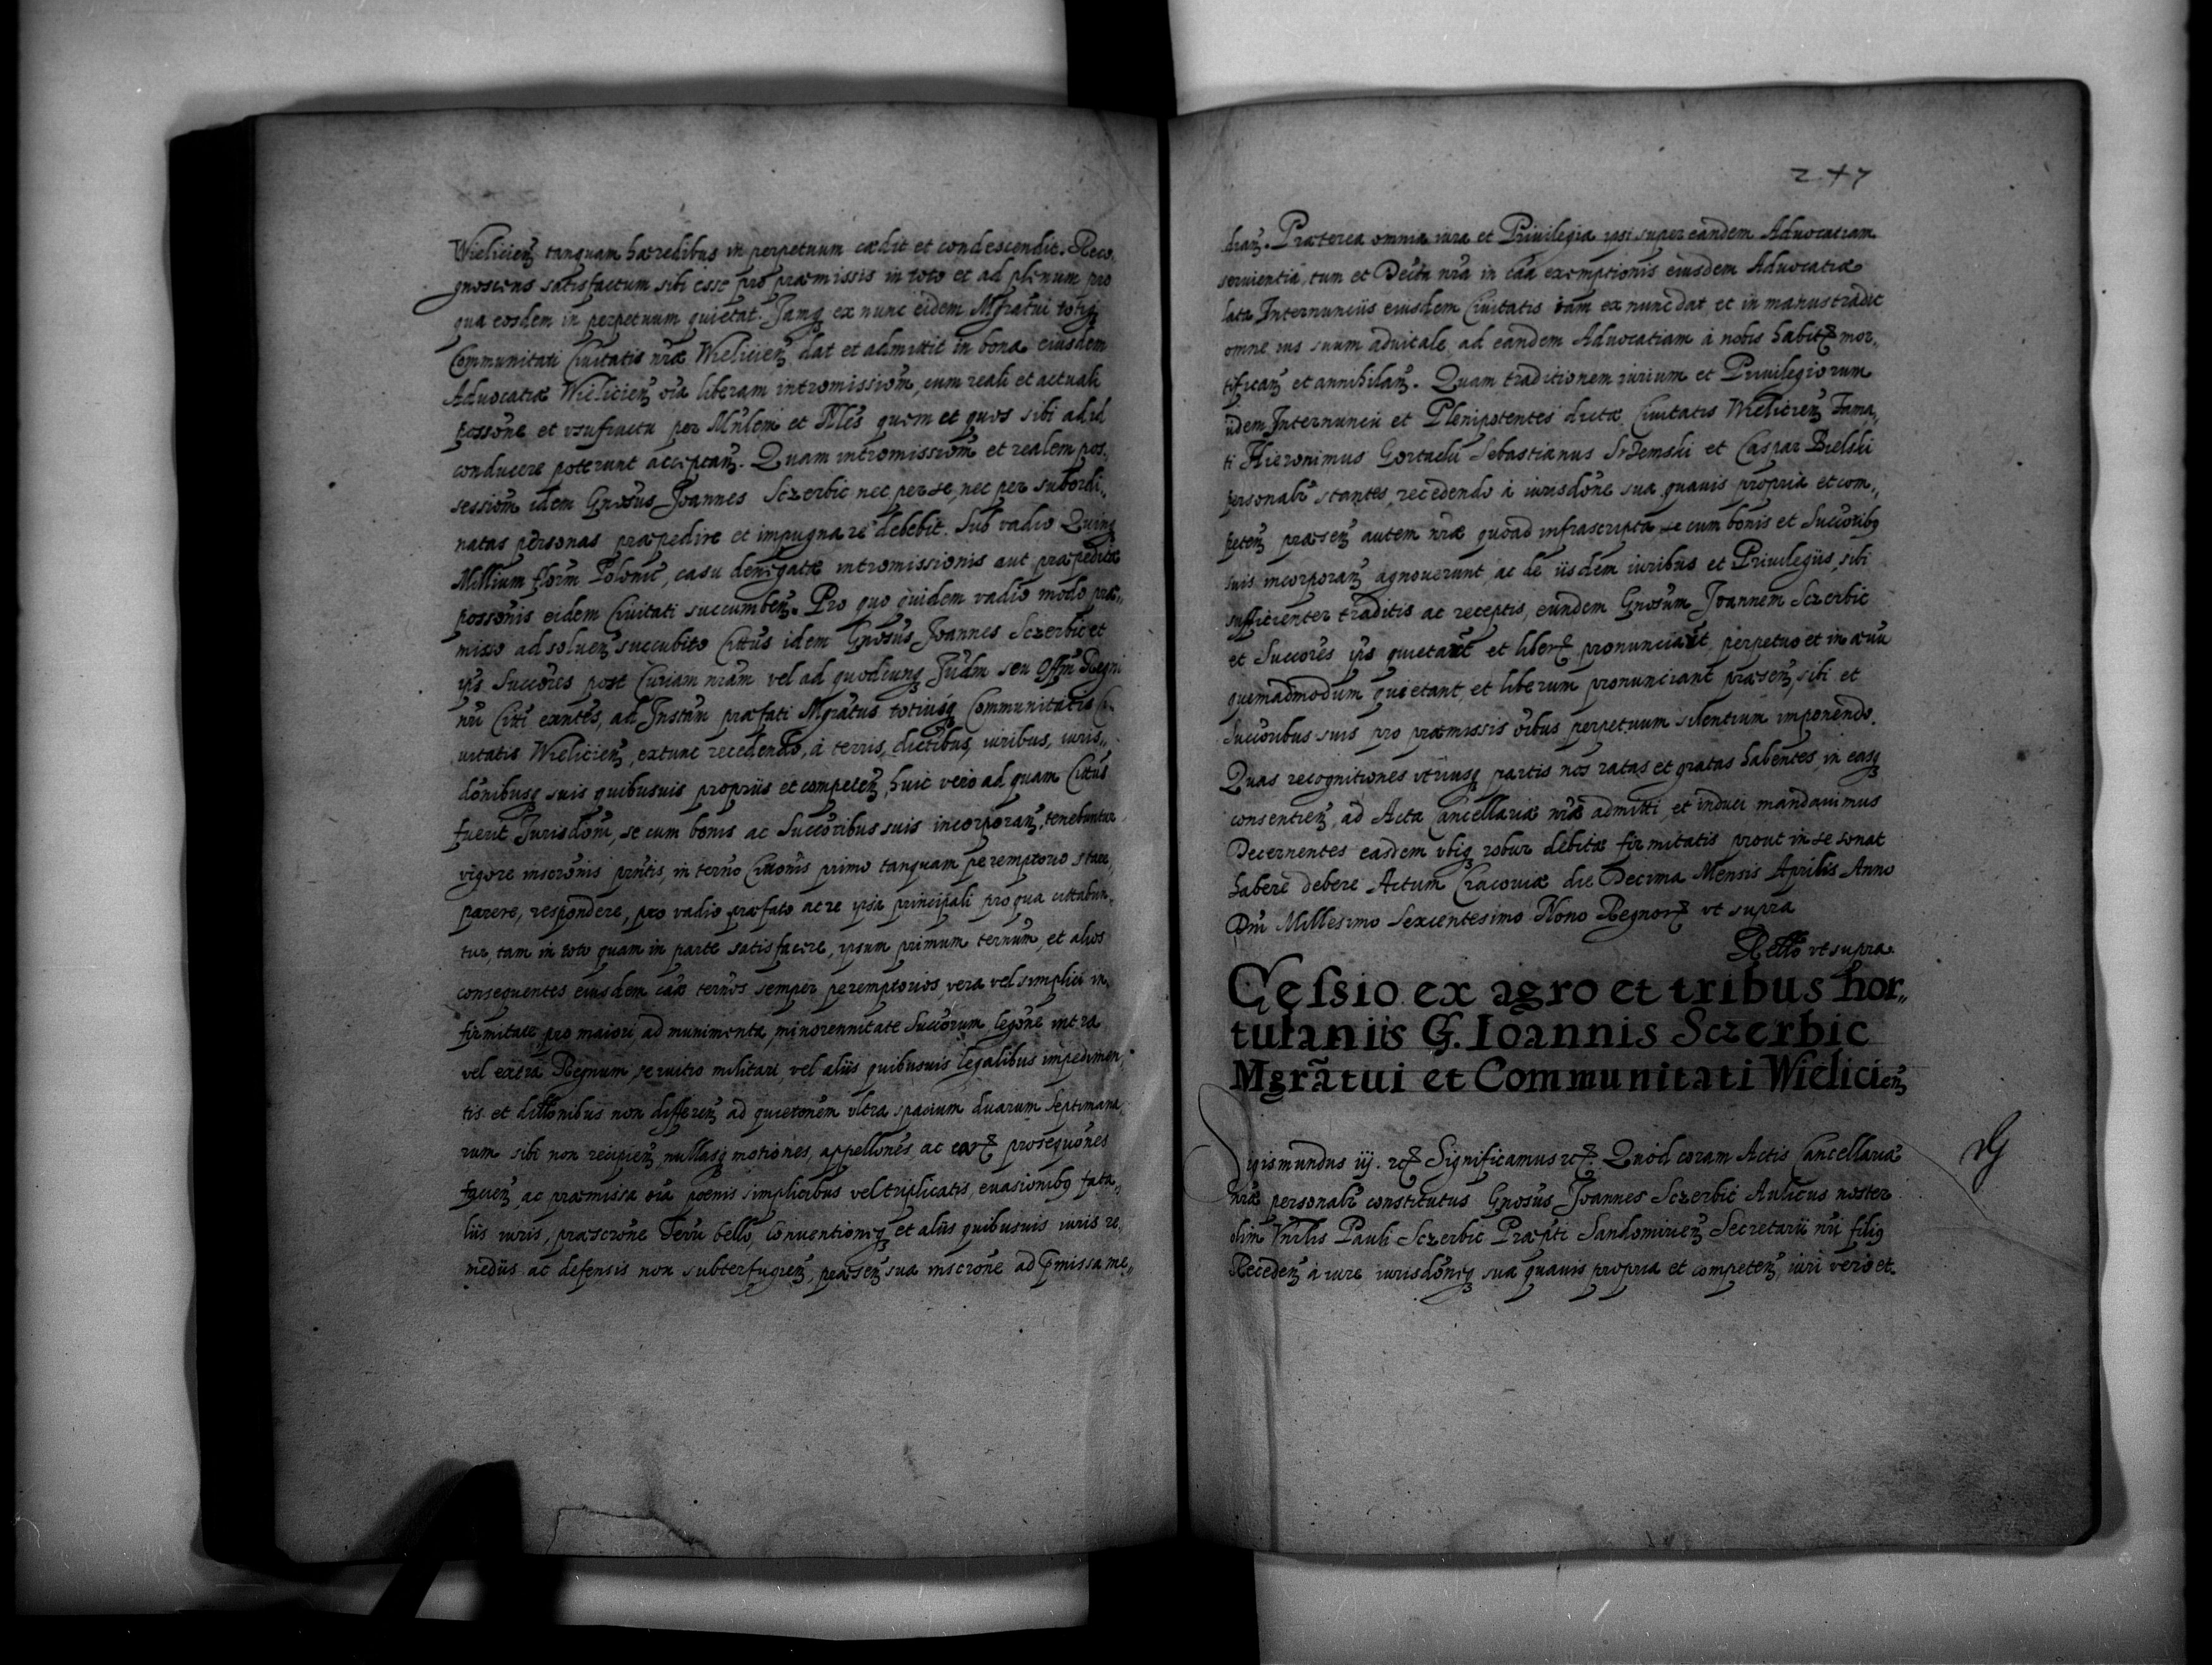 Wielicien̄ tanquam hæredibus in perpetuum cædit et condescendit. Reco„
gnoscens satisfactum sibi esse pro præmissis in toto et ad plenum pro
qua eosdem in perpetuum quietat. Jamq ex nunc eidem Mgratui totiq
Communitati Ciuitatis nræ Wielicien̄ dat et admittit in bona eiusdem
Aduocatiæ Wielicien̄ oīa liberam intromissiom̄, cum reali et actuali
possone et vsufructu per Mnlem et Nles quem et quos sibi ad id
conducere poterunt acceptan̄. Quam intromissiom̄ et realem pos„
sessiom̄ idem Gnosus Joannes Sczerbic nec per se, nec per subordi„
natas personas præpedire et impugnare debebit. Sub vadio Quinq
Millium florm̄ Polonic, casu denegatæ intromissionis aut præpeditæ
possonis eidem Ciuitati succumben̄. Pro quo quidem vadio modo præ„
misso ad soluen̄ succubito Cittus idem Gnosus Joannes Sczerbic et
ips Succores post Curiam nram vel ad quodcunq Judm seu Offm Regni
nri Citti exntes, ad Instan̄ præfati Mgratus totiusq Communitatis Ci„
uitatis Wielicien̄, extunc recedendo, à terris, dictibus, iuribus, iuris„
donibusq suis quibusuis propriis et competen̄, huic vero ad quam Cittus
fuerit Jurisdom̄, se cum bonis ac Succoribus suis incorporan̄, tenebuntur
vigore inscronis pntis, in terno Cittonis primo tanquam peremptorio stare,
parere, respondere, pro vadio præfato ac re ipsa principali pro qua cittabun„
tur, tam in toto quam in parte satisfacere, ipsum primum ternum, et alios
consequentes eiusdem caæ ternos semper peremptorios, vera vel simplici in„
firmitate, pro maiori, ad munimenta, minorennitate Succorum, legone intra
vel extra Regnum, seruitio militari, vel aliis quibusuis legalibus impedimen„
tis et dillonibus non differen̄ ad quietonem vltra spacium duarum septimana„
rum sibi non recipien̄, nullasq motiones, appellones ac earꝝ prosequones
facien̄, ac præmissa oīa poenis simplicibus vel triplicatis, euasionibq fata„
liis iuris, præscrone Terræ bello, conuentioniq et aliis quibusuis iuris re„
mediis ac defensis non subterfugien̄, præsen̄ sua inscrone ad p̄missa me„
247
dian̄. Præterea omnia iura et Priuilegia ipsi super eandem Aduocatiam
seruientia, tum et Decta nra in caa exemptionis eiusdem Aduocatiæ
lata Internunciis eiusdem Ciuitatis iam ex nunc dat et in manus tradit
omne ius suum aduitale ad eandem Aduocatiam à nobis habitꝝ mor„
tifican̄ et annihilan̄. Quam traditionem iurium et Priuilegiorum
iidem Internuncii et Plenipotentes dictæ Ciuitatis Wielicien̄ Fama„
ti Hieronimus Gortach Sebastianus Srzemski et Caspar Bielski
personalr stantes, recedendo à iurisdone sua quauis propria et com„
peten̄ præsen̄ autem nræ quoad infrascripta se cum bonis et Succoribq
suis incorporan̄ agnouerunt, ac de iisdem iuribus et Priuilegiis, sibi
sufficienter traditis ac receptis, eundem Gnosum Joannem Sczerbic
et Succores ips quietant et liberꝝ pronunciant, perpetuo et in æuū
quemadmodum quietant, et liberum pronunciant præsen̄, sibi et
Succoribus suis pro præmissis oibus perpetuum silentium imponendo.
Quas recognitiones vtriusq partis nos ratas et gratas habentes, in easq
consentien̄, ad Acta Cancellariæ nræ admitti, et induci mandauimus
Decernentes easdem vbiq robur debitæ firmitatis prout in se sonat
habere debere Actum Cracouiæ die Decima Mensis Aprilis Anno
Dni Millesimo Sexcentesimo Nono Regnorꝝ vt supra
Rello vt supra
Cessio ex agro et tribus hor„
tulaniis G. Ioannis Sczerbic
Mgrãtui et Communitati Wielicien̄
Sigismundus iij. rcꝝ Significamus rcꝝ. Quod coram Actis Cancellariæ
nræ personalr constitutus Gnosus Joannes Sczerbic Aulicus noster
olim Vnrlis Pauli Sczerbic Præpti Sandomirien̄ Secretarii nri filiq
Receden̄ à iure iurisdoniq sua quauis propria et competen̄, iuri vero et